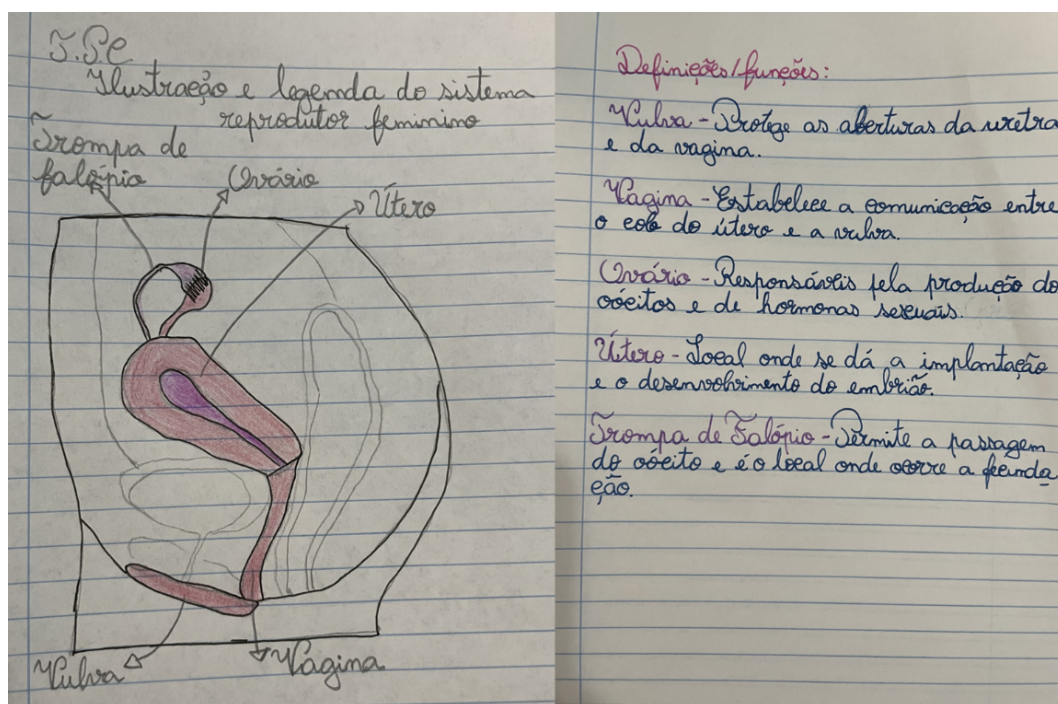 T.P.C
Ilustração e legenda do sistema
reprodutor feminino
Trompa de
falópio
Ovário
Útero
Vulva
Vagina
Definições/funções:
Vulva - Protege as aberturas da uretra
e da vagina.
Vagina - Estabelece a comunicação entre
o colo do útero e a vulva.
Ovário - Responsáveis pela produção de
oócitos e de hormonas sexuais.
Útero - Local onde se dá a implantação
e o desenvolvimento do embrião.
Trompa de Falópio - Permite a passagem
do oócito e é o local onde ocorre a fecunda
ção.